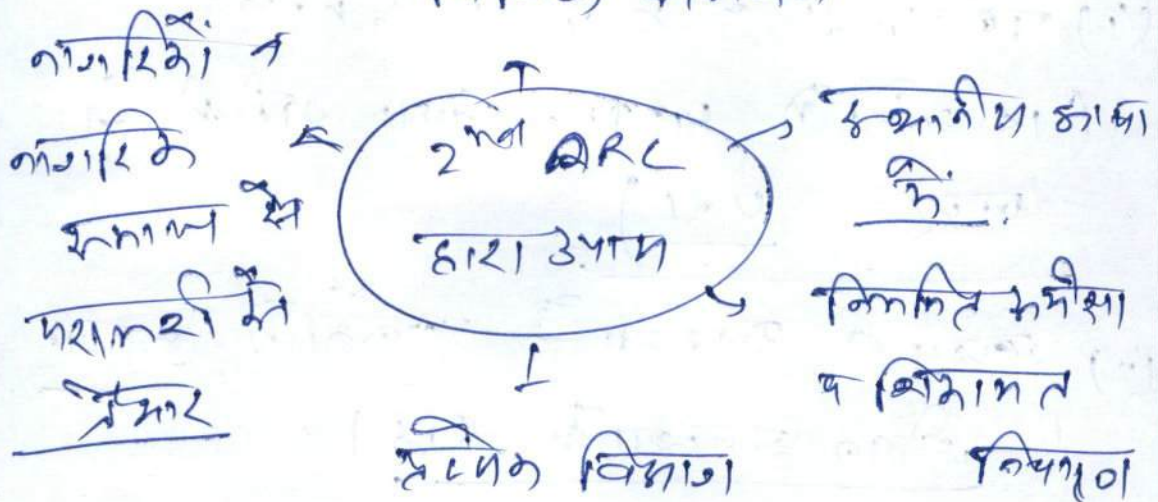 नागरिकों व
नागरिक
समाज से
परामर्श से
तैयार
2nd ARC
द्वारा उपाय
स्थानीय भाषा
में
नियमित समीक्षा
व शिकायत
निवारण
प्रत्येक विभाग